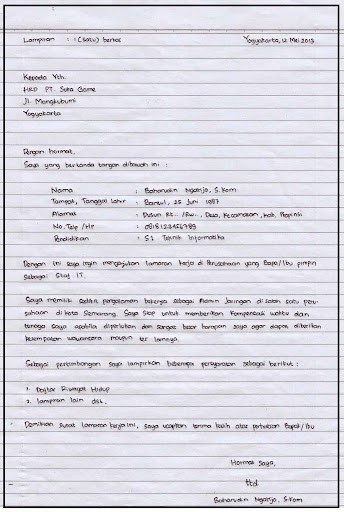 Lampiran : 1 (satu) berkas Yogyakarta, 12 Mei 2013
Kepada Yth.
HRD PT. Suka Game
Jl. Mangkubumi
Yogyakarta
Dengan hormat,
Saya yang bertanda tangan dibawah ini :
Nama : Baharudin Ngatijo, S.Kom
Tempat, Tanggal Lahir : Bantul, 25 Juni 1987
Alamat : Dusun Rt.. /Rw.., Desa, Kecamatan, Kab, Propinsi
No. Telp /Hp : 0818123456789
Pendidikan : S1 Teknik Informatika
Dengan ini saya ingin mengajukan lamaran kerja di Perusahaan yang Bapa/Ibu pimpin
Sebagai Staf IT.
Saya memiliki sedikit pengalaman bekerja sebagai Admin Jaringan di salah satu peru-
sahaan di kota Semarang. Saya Siap untuk memberikan kompensasi waktu dan
tenaga saya apabila diperlukan dan sangat besar harapan saya agar dapat diberikan
kesempatan wawancara maupun tes lainnya.
Sebagai pertimbangan saya lampirkan beberapa persyaratan sebagai berikut :
1. Daftar Riwayat Hidup
2. lampiran lain dsb.
Demikian surat lamaran kerja ini, saya ucapkan terima kasih atas perhatian Bapak/Ibu
Hormat Saya,
ttd
Baharudin Ngatijo, S.Kom